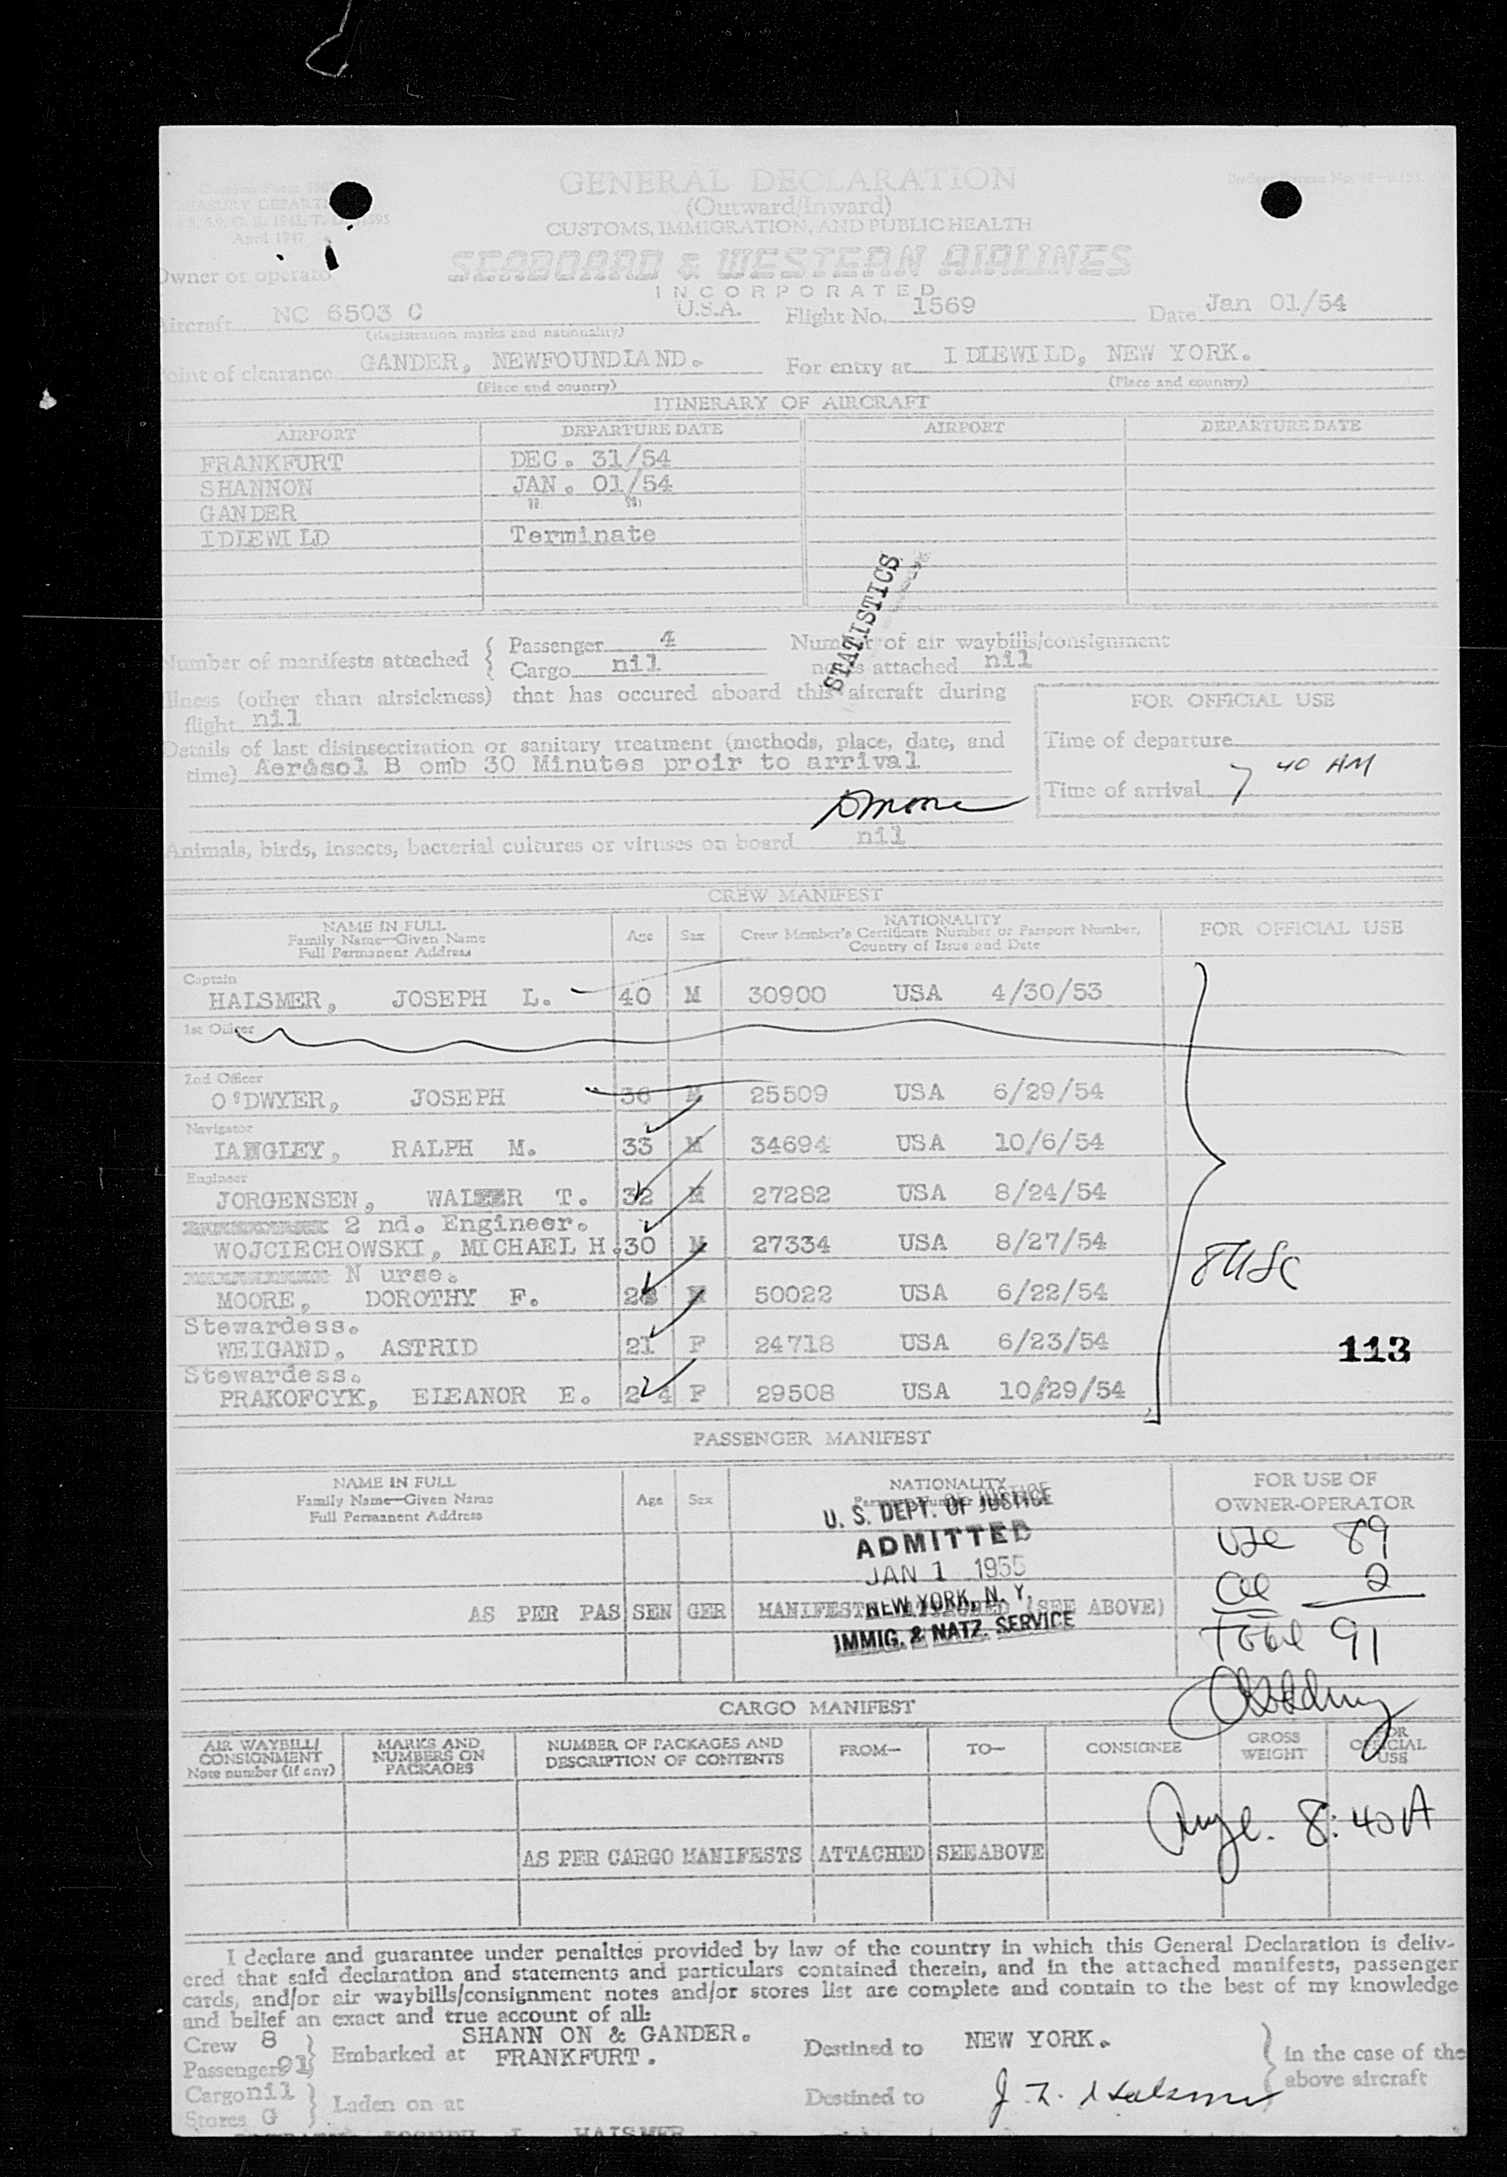 GENERAL DECLARATION
(Outward/Inward)
CUSTOMS, IMMIGRATION, AND PUBLIC HEALTH
April 1947
Owner or operator
SEABOARD & WESTERN AIRLINES
INCORPORATED
Aircraft NC 6503 C U.S.A. Flight No. 1569 Date Jan 01/54
(Registration marks and nationality)
Point of clearance GANDER, NEWFOUNDLAND. For entry at IDLEWILD, NEW YORK.
(Place and country) (Place and country)
ITINERARY OF AIRCRAFT
AIRPORT DEPARTURE DATE AIRPORT DEPARTURE DATE
FRANKFURT DEC. 31/54
SHANNON JAN. 01/54
GANDER " "
IDLEWILD Terminate
STATISTICS
Number of manifests attached { Passenger 4
Cargo nil
Number of air waybills/consignment
notes attached nil
Illness (other than airsickness) that has occured aboard this aircraft during
flight nil
Details of last disinsectization or sanitary treatment (methods, place, date, and
time) Aerosol B omb 30 Minutes proir to arrival
FOR OFFICIAL USE
Time of departure
Time of arrival 7 40 AM
Animals, birds, insects, bacterial cultures or viruses on board nil
CREW MANIFEST
NAME IN FULL
Family Name—Given Name
Full Permanent Address
Age Sex
NATIONALITY
Crew Member's Certificate Number or Passport Number,
Country of Issue and Date
FOR OFFICIAL USE
Captain
HAISMER, JOSEPH L. 40 M 30900 USA 4/30/53
1st Officer
2nd Officer
O'DWYER, JOSEPH 36 M 25509 USA 6/29/54
Navigator
LANGLEY, RALPH M. 33 M 34694 USA 10/6/54
Engineer
JORGENSEN, WALTER T. 32 M 27282 USA 8/24/54
2 nd. Engineer.
WOJCIECHOWSKI, MICHAEL H. 30 M 27334 USA 8/27/54
N urse.
MOORE, DOROTHY F. 50022 USA 6/22/54
Stewardess.
WEIGAND, ASTRID 21 F 24718 USA 6/23/54
Stewardess.
PRAKOFCYK, ELEANOR E. 24 F 29508 USA 10/29/54
8 USC
113
PASSENGER MANIFEST
NAME IN FULL
Family Name—Given Name
Full Permanent Address
Age Sex
NATIONALITY
FOR USE OF
OWNER-OPERATOR
U. S. DEPT. OF JUSTICE
ADMITTED
JAN 1 1955
NEW YORK, N. Y.
IMMIG. & NATZ. SERVICE
AS PER PAS SEN GER MANIFESTS ATTACHED (SEE ABOVE)
USC 89
2
Total 91
CARGO MANIFEST
AIR WAYBILL/
CONSIGNMENT
Note number (if any)
MARKS AND
NUMBERS ON
PACKAGES
NUMBER OF PACKAGES AND
DESCRIPTION OF CONTENTS
FROM—
TO—
CONSIGNEE
GROSS
WEIGHT
FOR
OFFICIAL
USE
8:40 A
AS PER CARGO MANIFESTS ATTACHED SEE ABOVE
I declare and guarantee under penalties provided by law of the country in which this General Declaration is deliv-
ered that said declaration and statements and particulars contained therein, and in the attached manifests, passenger
cards, and/or air waybills/consignment notes and/or stores list are complete and contain to the best of my knowledge
and belief an exact and true account of all:
Crew 8
Passenger 91
Embarked at SHANN ON & GANDER.
FRANKFURT.
Destined to NEW YORK.
in the case of the
above aircraft
Cargo nil
Stores 0
Laden on at
Destined to
J. L. Haismer